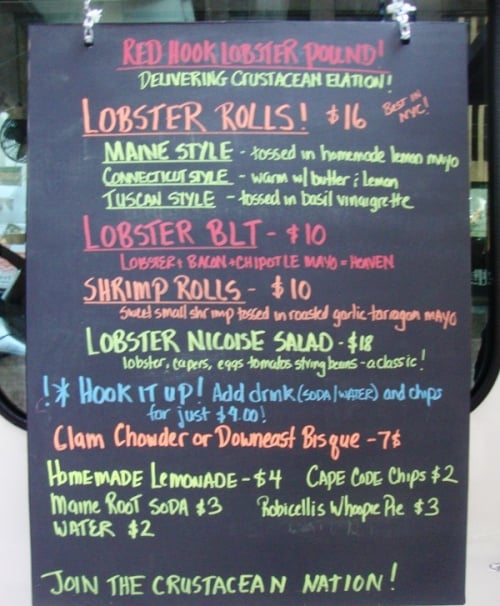 RED HOOK LOBSTER POUND!
DELIVERING CRUSTACEAN ELATION!
LOBSTER ROLLS! $16 BEST IN NYC!
MAINE STYLE - tossed in homemade lemon mayo
CONNECTICUT STYLE - warm w/ butter & lemon
TUSCAN STYLE - tossed in basil vinaigrette
LOBSTER BLT - $10
LOBSTER + BACON + CHIPOTLE MAYO = HEAVEN
SHRIMP ROLLS - $10
sweet small shrimp tossed in roasted garlic-tarragon mayo
LOBSTER NICOISE SALAD - $18
lobster, capers, eggs tomatos string beans - a classic!
!* HOOK IT UP! Add drink (SODA/WATER) and chips
for just $4.00!
Clam Chowder or Downeast Bisque - 7$
HOMEMADE LEMONADE - $4 CAPE CODE Chips $2
Maine Root SODA $3 Robicellis Whoopie Pie $3
WATER $2
JOIN THE CRUSTACEAN NATION!